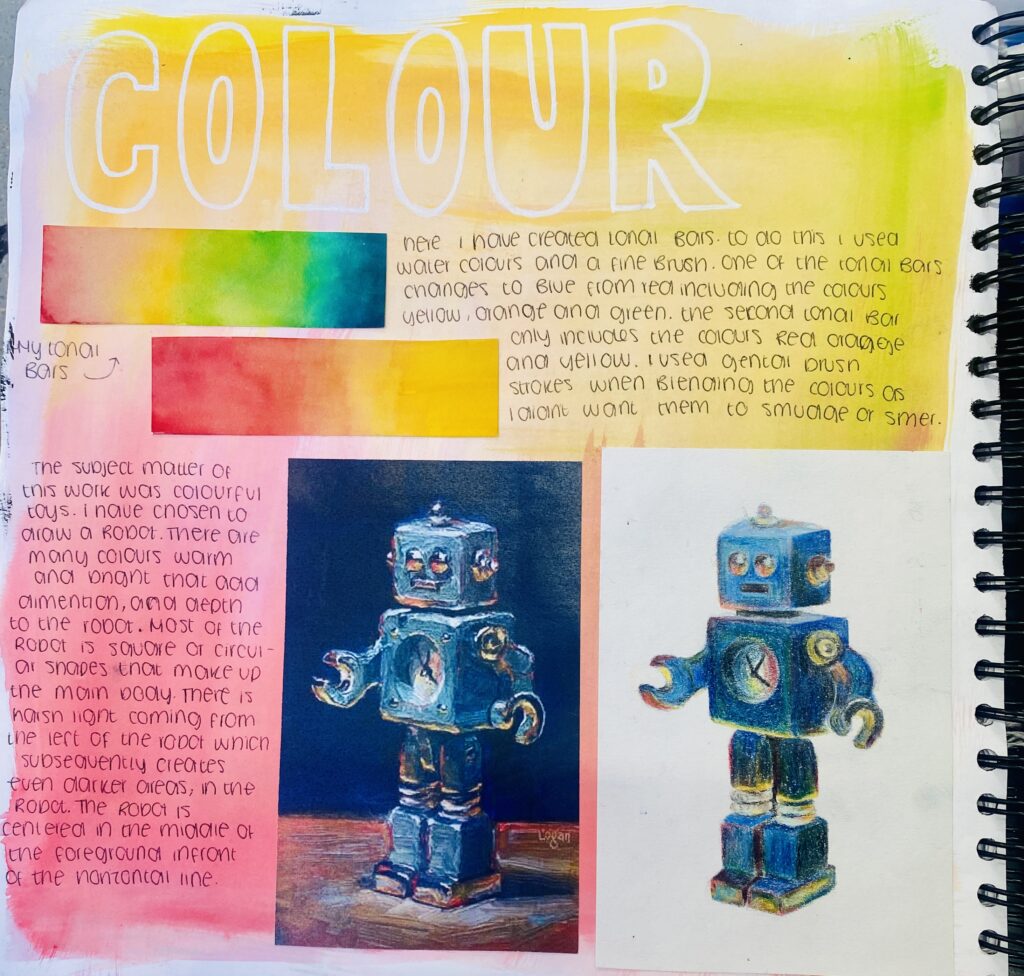 COLOUR
here I have created tonal bars. to do this I used
water colours and a fine brush. one of the tonal bars
changes to blue from red including the colours
yellow, orange and green. the second tonal bar
only includes the colours red orange
and yellow. I used gental brush
strokes when blending the colours as
I didnt want them to smudge or smer.
My tonal
bars
The subject matter of
this work was colourful
toys. I have chosen to
draw a robot. There are
many colours warm
and bright that add
dimention, and depth
to the robot. Most of the
robot is square or circul-
ar shapes that make up
the main body. There is
harsh light coming from
the left of the robot which
subsequently creates
even darker areas, in the
robot. The robot is
centered in the middle of
the foreground infront
of the horizontal line.
Logan